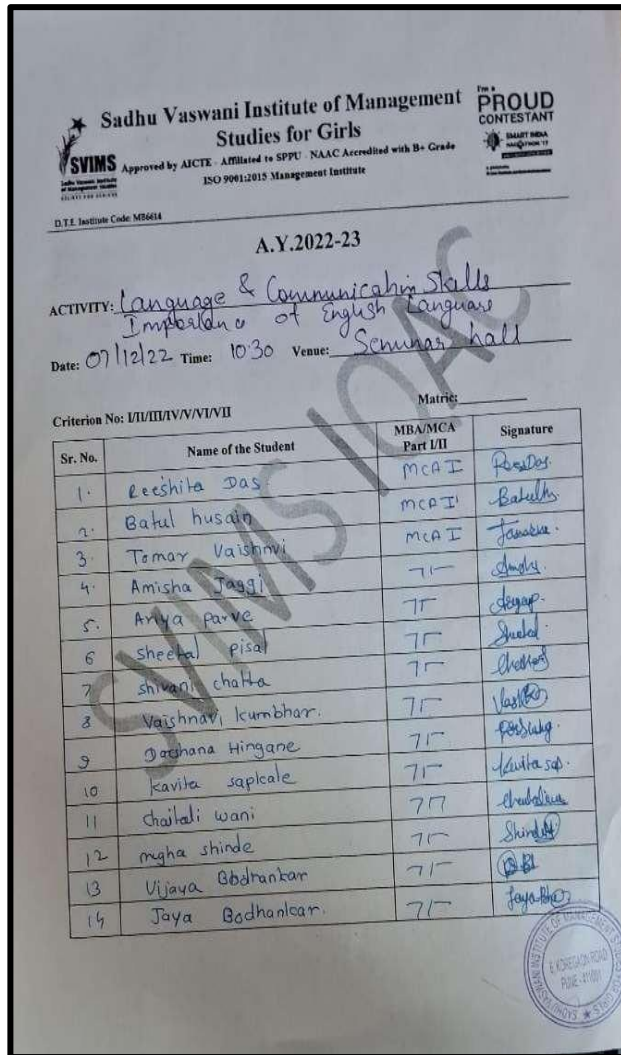 Sadhu Vaswani Institute of Management
Studies for Girls
SVIMS
Approved by AICTE - Affiliated to SPPU - NAAC Accredited with B+ Grade
ISO 9001:2015 Management Institute
I'm a
PROUD
CONTESTANT
SMART INDIA
HACKATHON'17
D.T.E. Institute Code: MB6614
A.Y.2022-23
ACTIVITY: Language & Communication Skills
Importance of English Language
Date: 07/12/22 Time: 10:30 Venue: Seminar hall
Criterion No: I/II/III/IV/V/VI/VII Matric:
Sr. No. Name of the Student MBA/MCA Part I/II Signature
1. Reeshita Das MCA I
2. Batul husain MCA I
3. Tomar Vaishnvi MCA I
4. Amisha Jaggi
5. Ariya parve
6 sheetal pisal
7 shivani chatta
8 Vaishnavi kumbhar.
9 Darshana Hingane
10 kavita sapkale Kavita sap.
11 chaitali wani
12 mgha shinde
13 Vijaya
14 Jaya Bodhankar.
SVIMS IQAC
SADHU VASWANI INSTITUTE OF MANAGEMENT STUDIES FOR GIRLS
6, KOREGAON ROAD
PUNE - 411001